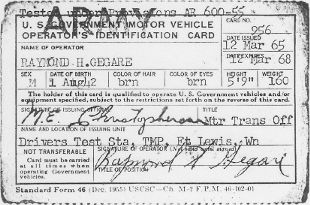 ARMY
AR 600-55
U.S. GOVERNMENT MOTOR VEHICLE
OPERATOR'S IDENTIFICATION CARD
CARD NO.
956
DATE ISSUED
12 Mar 65
NAME OF OPERATOR
RAYMOND H. GEGARE
Mar 68
SEX DATE OF BIRTH COLOR OF HAIR COLOR OF EYES HEIGHT WEIGHT
M 1 Aug 42 brn brn 5'9" 160
The holder of this card is qualified to operate U. S. Government vehicles and/or
equipment specified, subject to the restrictions set forth on the reverse of this card.
SIGNATURE OF ISSUING OFFICIAL TITLE
M.E. Christopherson Mtr Trans Off
NAME AND LOCATION OF ISSUING UNIT
Drivers Test Sta, TMP, Ft Lewis, Wn
NOT TRANSFERABLE
Card must be carried
at all times when
operating Government
vehicles.
SIGNATURE OF OPERATOR
Raymond H Gegare
Standard Form 46 (Dec. 1955) USCSC—Ch. M-7 F.P.M. 46-102-01